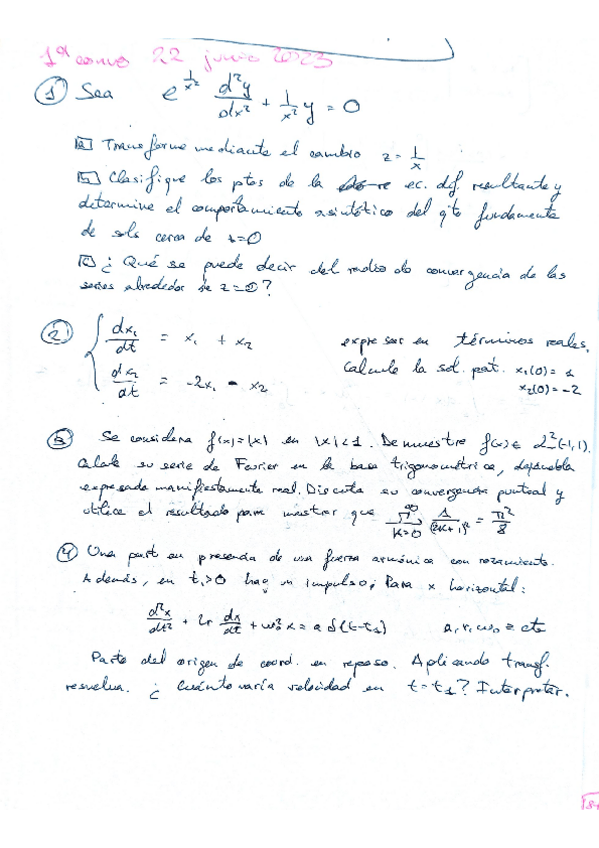 1ª convo 22 junio 2023
① Sea e^{1/x²} d²y/dx² + 1/x² y = 0
a Transforme mediante el cambio z = 1/x
b Clasifique los ptos de la ec. dif. resultante y
determine el comportamiento asintótico del cjto fundamental
de sols cerca de z=0
c ¿Qué se puede decir del radio de convergencia de las
series alrededor de z=0?
② { dx₁/dt = x₁ + x₂ expresar en términos reales.
dx₂/dt = -2x₁ - x₂ Calcule la sol. part. x₁(0)=1
x₂(0)=-2
③ Se considera f(x)=|x| en |x|<1. Demuestre f(x)∈ L²(-1,1).
Calcule su serie de Fourier en la base trigonométrica, dejándola
expresada manifiestamente real. Discuta su convergencia puntual y
utilice el resultado para mostrar que ∑_{k=0}^{∞} 1/(2k+1)² = π²/8
④ Una part en presencia de una fuerza armónica con rozamiento.
Además, en t₁>0 hay un impulso; Para x horizontal:
d²x/dt² + 2r dx/dt + ω₀² x = a δ(t-t₁) a, r, ω₀ = cte
Parte del origen de coord. en reposo. Aplicando transf.
resuelva. ¿Cuánto varía velocidad en t=t₁? Interpretar.